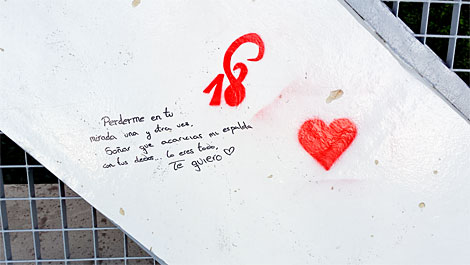 18
Perderme en tu
mirada una y otra vez.
Soñar que acaricias mi espalda
con tus dedos... Lo eres todo,
Te quiero ♡